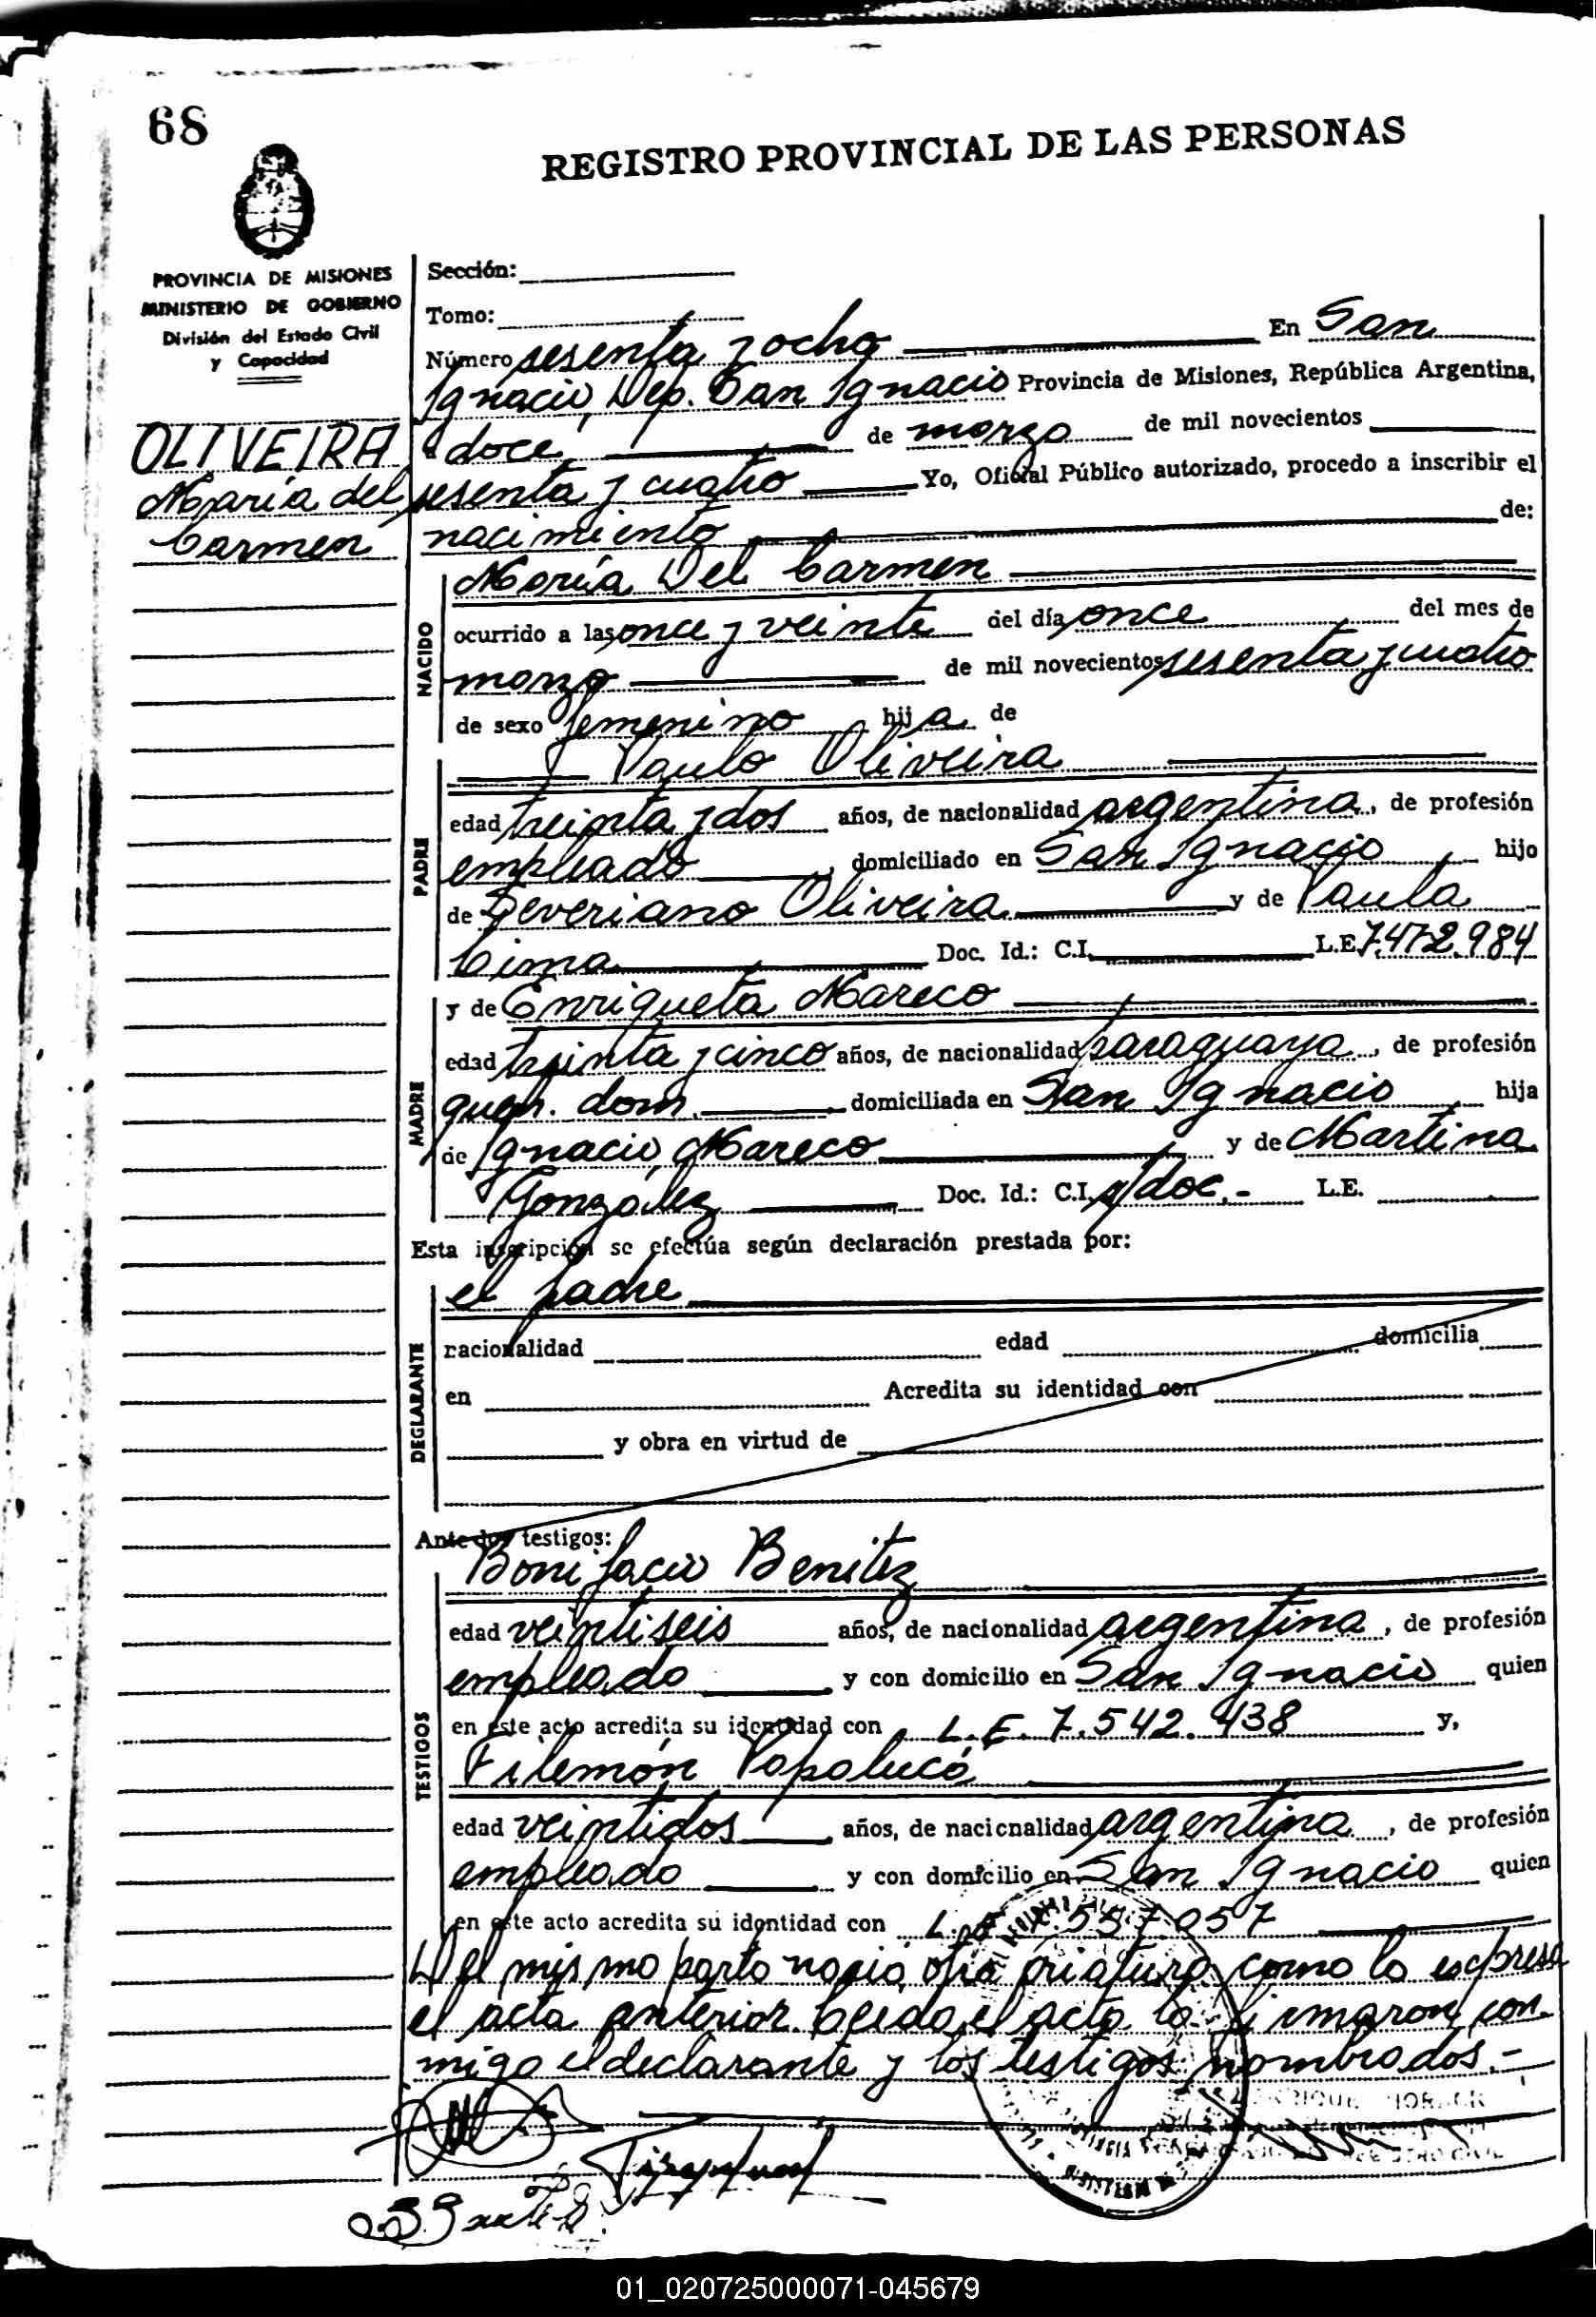 68
REGISTRO PROVINCIAL DE LAS PERSONAS
PROVINCIA DE MISIONES
MINISTERIO DE GOBIERNO
División del Estado Civil
y Capacidad
OLIVEIRA
María del
Carmen
Sección:
Tomo:
Número sesenta y ocho En San
Ignacio, Dep. San Ignacio Provincia de Misiones, República Argentina,
a doce de marzo de mil novecientos
sesenta y cuatro Yo, Oficial Público autorizado, procedo a inscribir el
nacimiento de:
NACIDO
María Del Carmen
ocurrido a las once y veinte del día once del mes de
marzo de mil novecientos sesenta y cuatro
de sexo femenino hija de
PADRE
Paulo Oliveira
edad treinta y dos años, de nacionalidad argentina, de profesión
empleado, domiciliado en San Ignacio hijo
de Severiano Oliveira y de Paula
Cima Doc. Id.: C.I. L.E. 7.472.984
MADRE
y de Enriqueta Mareco
edad treinta y cinco años, de nacionalidad paraguaya, de profesión
queh. dom. domiciliada en San Ignacio hija
de Ignacio Mareco y de Martina
González Doc. Id.: C.I. s/doc.- L.E.
Esta inscripción se efectúa según declaración prestada por:
DECLARANTE
el padre
nacionalidad edad domicilia
en Acredita su identidad con
y obra en virtud de
Ante dos testigos:
TESTIGOS
Bonifacio Benitez
edad veintiseis años, de nacionalidad argentina, de profesión
empleado y con domicilio en San Ignacio quien
en este acto acredita su identidad con L.E. 7.542.438 y,
Filemón Papalucá
edad veintidos años, de nacionalidad argentina, de profesión
empleado y con domicilio en San Ignacio quien
en este acto acredita su identidad con L.E. 557.057
Del mismo parto nació otra criatura como lo expresa
el acta anterior. Leida el acta la firmaron con-
migo el declarante y los testigos nombrados.-
01_020725000071-045679